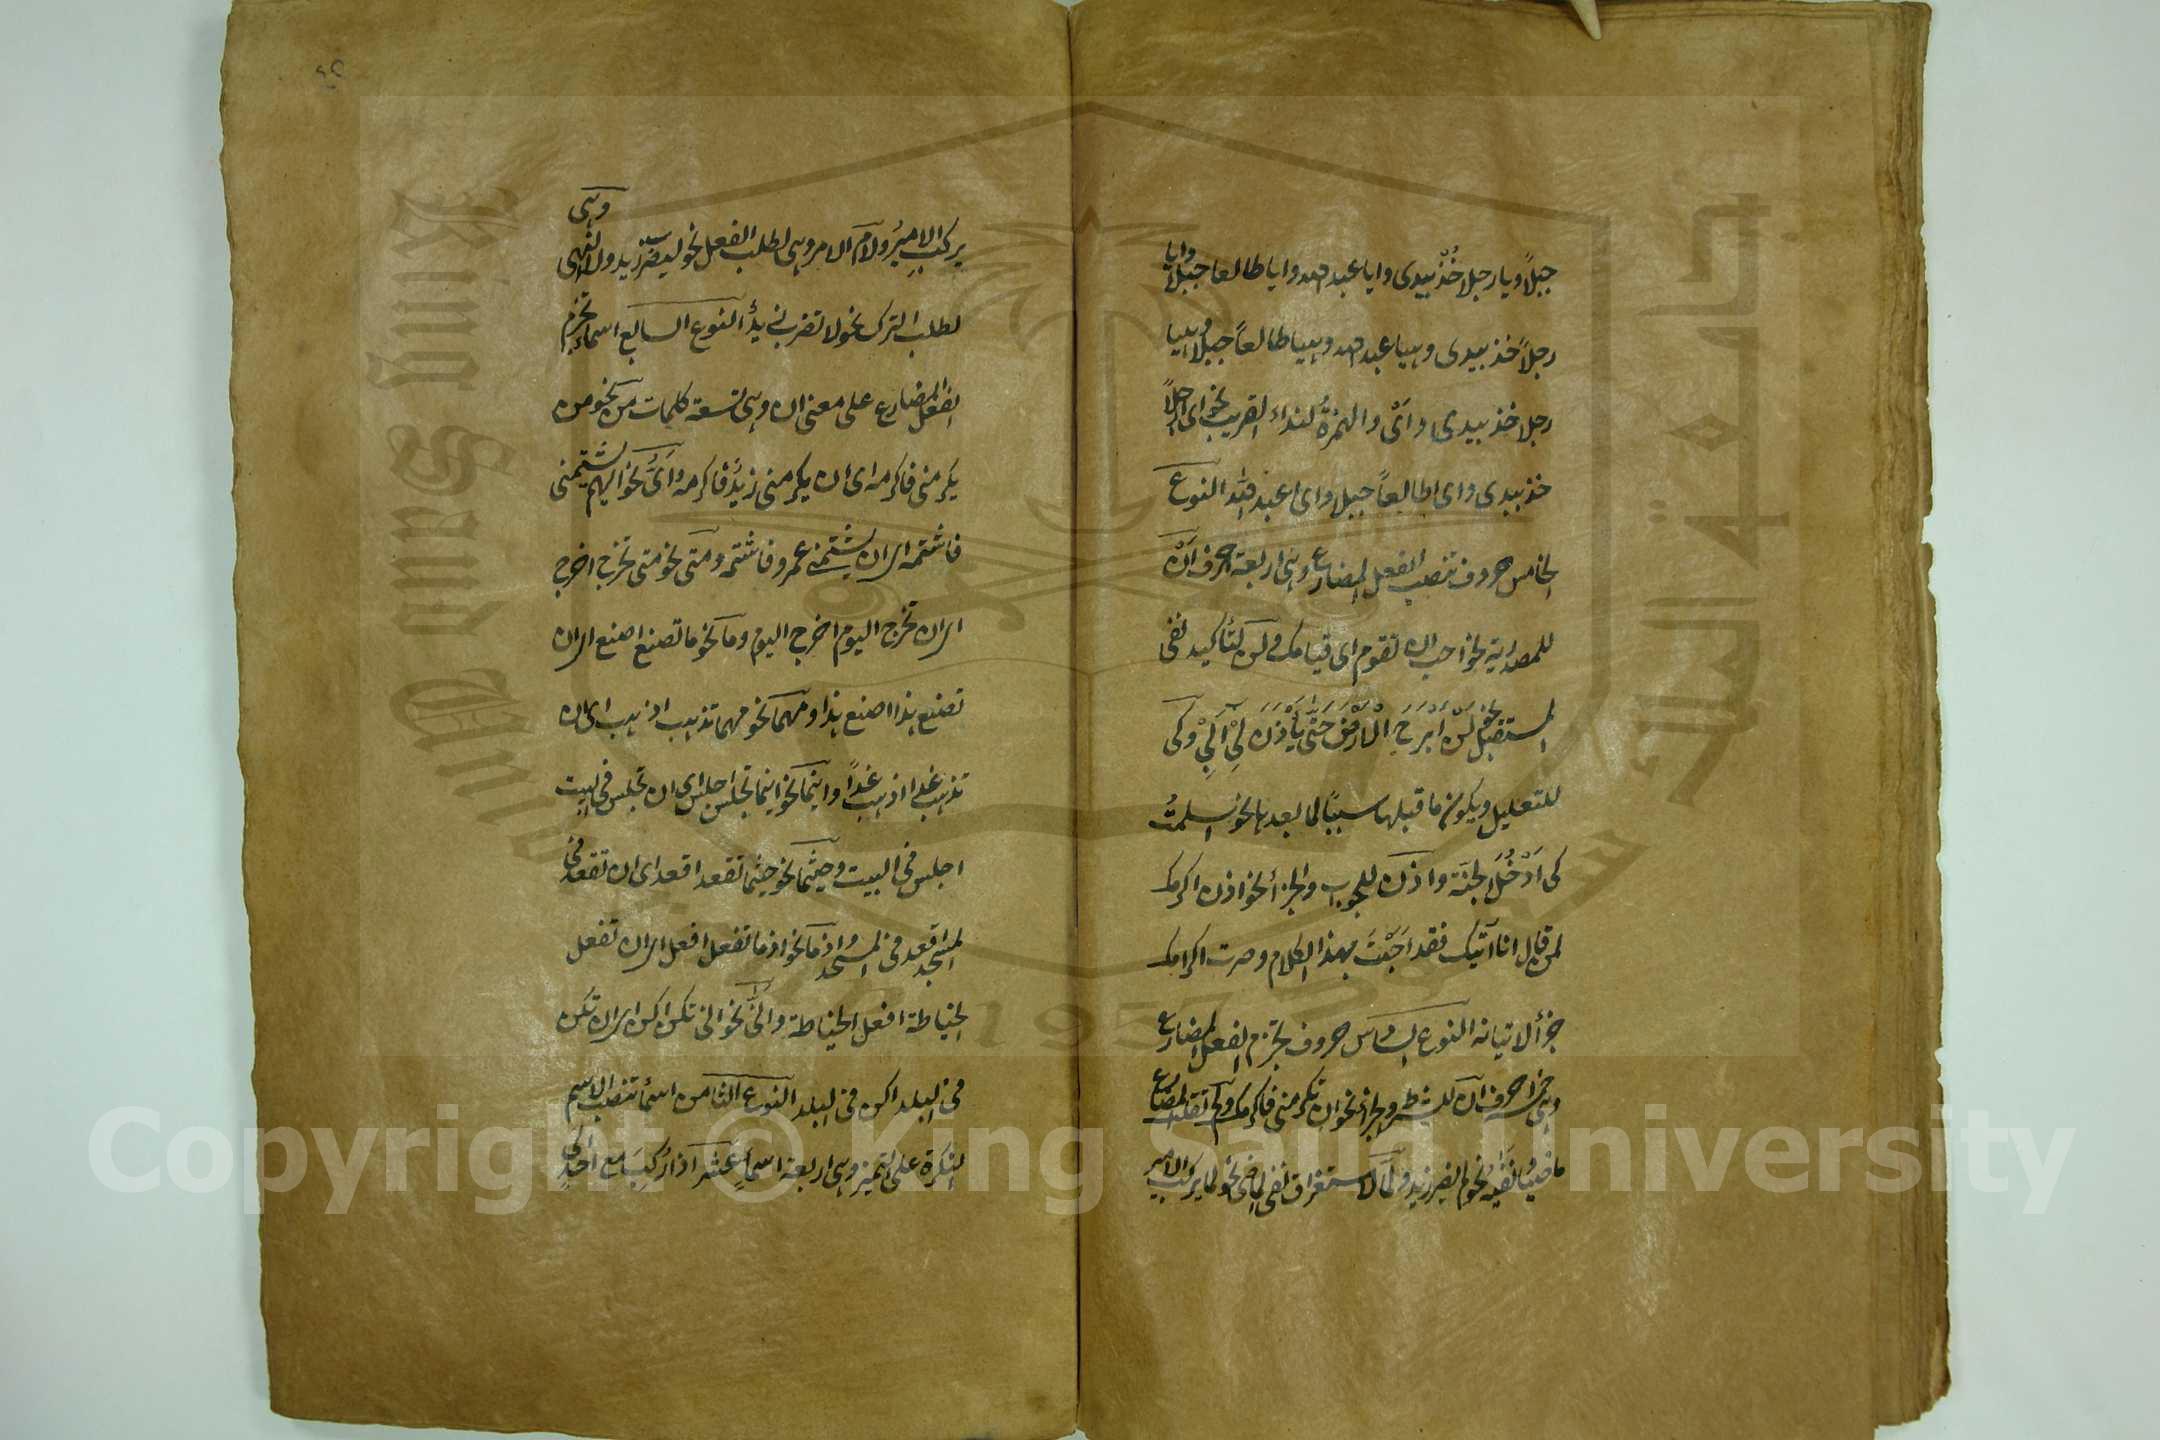 جبلاً ويا رجلا خُذْ بيدى وايا عبد الله وايا طالعا جبلا وايا
رجلاً خذ بيدى وهيا عبد الله وهيا طالعاً جبلا وهيا
رجلا خذ بيدى وَاَىْ والهمزةُ لنداء القريب نحو اى ارجلاً
خذ بيدى واى اطالعاً جبلا واى اعبد الله النوع
الخامس حروف تنصب الفعل المضارع وهى اربعة احرف اَنْ
للمصدرية نحو احب ان تقوم اى قيامك ولن لتأكيد نفى
المستقبل نحو لَنْ اَبْرَحَ الْاَرْضَ حَتّٰى يَأْذَنَ لِىْ اَبِىْ وكَى
للتعليل ويكون ما قبلها سببًا لما بعدها نحو اسلمتُ
كى اَدْخُلَ الجنة واذن للجواب والجزأ نحو اذن اكرمك
لمن قال انا آتيك فقد اَجَبْتَ بهذا الكلام وصرت اكرامك
جزأ لاتيانه النوع السادس حروف تجزم الفعل المضارع
وهى خمسة احرف ان للشرط والجزاء نحو ان تكرمنى فاكرمك ولم تقلب المضارع
ماضيا ونفيه نحو لم يضرب زيد ولمّا لاستغراق نفى الماضى نحو لما يركب الامير
وهى
يركب الاميرُ ولام الامر وهى لطلب الفعل نحو ليضرب زيد ولا النهى
لطلب الترك نحو لا تضرب زيدًا النوع السابع اسماء تجزم
الفعل المضارع على معنى ان وهى تسعة كلمات مَن نحو من
يكرمنى فاكرمه اى ان يكرمنى زيدٌ فاكرمه وَاَىُّ نحو ايهم يشتمنى
فاشتمه اى ان يشتمنى عمرو فاشتمه ومتى نحو متى تخرج اخرج
اى ان تخرج اليوم اخرج اليوم وما نحو ما تصنع اصنع اى ان
تصنع هذا اصنع هذا ومهما نحو مهما تذهب اذهب اى ان
تذهب غدا اذهب غداً واينما نحو اينما تجلس اجلس اى ان تجلس فى البيت
اجلس فى البيت وحيثما نحو حيثما تقعد اقعد اى ان تقعد فى
المسجد اقعد فى المسجد واذما نحو اذما تفعل افعل اى ان تفعل
الخياطة افعل الخياطة وانّى نحو انى تكن اكن اى ان تكن
فى البلد اكن فى البلد النوع الثامن اسمأ تنصب الاسم
النكرة على التميز وهى اربعة اسمأ عشر اذا رُكِبَ مع احد
Copyright © King Saud University